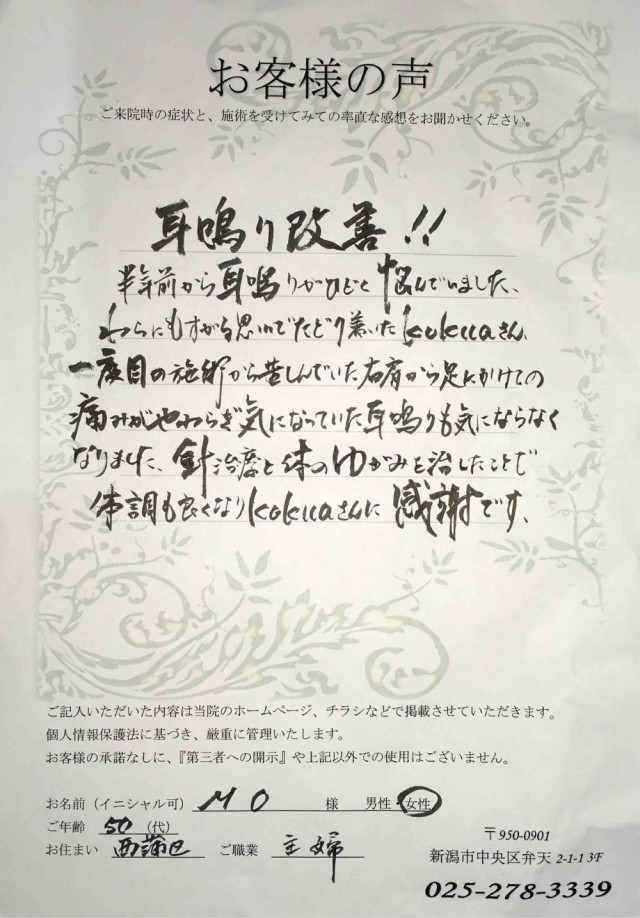 お客様の声
ご来院時の症状と、施術を受けてみての率直な感想をお聞かせください。
耳鳴り改善!!
半年前から耳鳴りがひどく悩んでいました、
わらにもすがる思いでたどり着いたkukuaさん、
一度目の施術から苦しんでいた右肩から足にかけての
痛みがやわらぎ気になっていた耳鳴りも気にならなく
なりました、針治療と体のゆがみを治したことで
体調も良くなりkukuaさんに感謝です、
ご記入いただいた内容は当院のホームページ、チラシなどで掲載させていただきます。
個人情報保護法に基づき、厳重に管理いたします。
お客様の承諾なしに、『第三者への開示』や上記以外での使用はございません。
お名前（イニシャル可） M O 様 男性・女性
ご年齢 50（代）
お住まい 西蒲区 ご職業 主婦
〒950-0901
新潟市中央区弁天 2-1-1 3F
025-278-3339